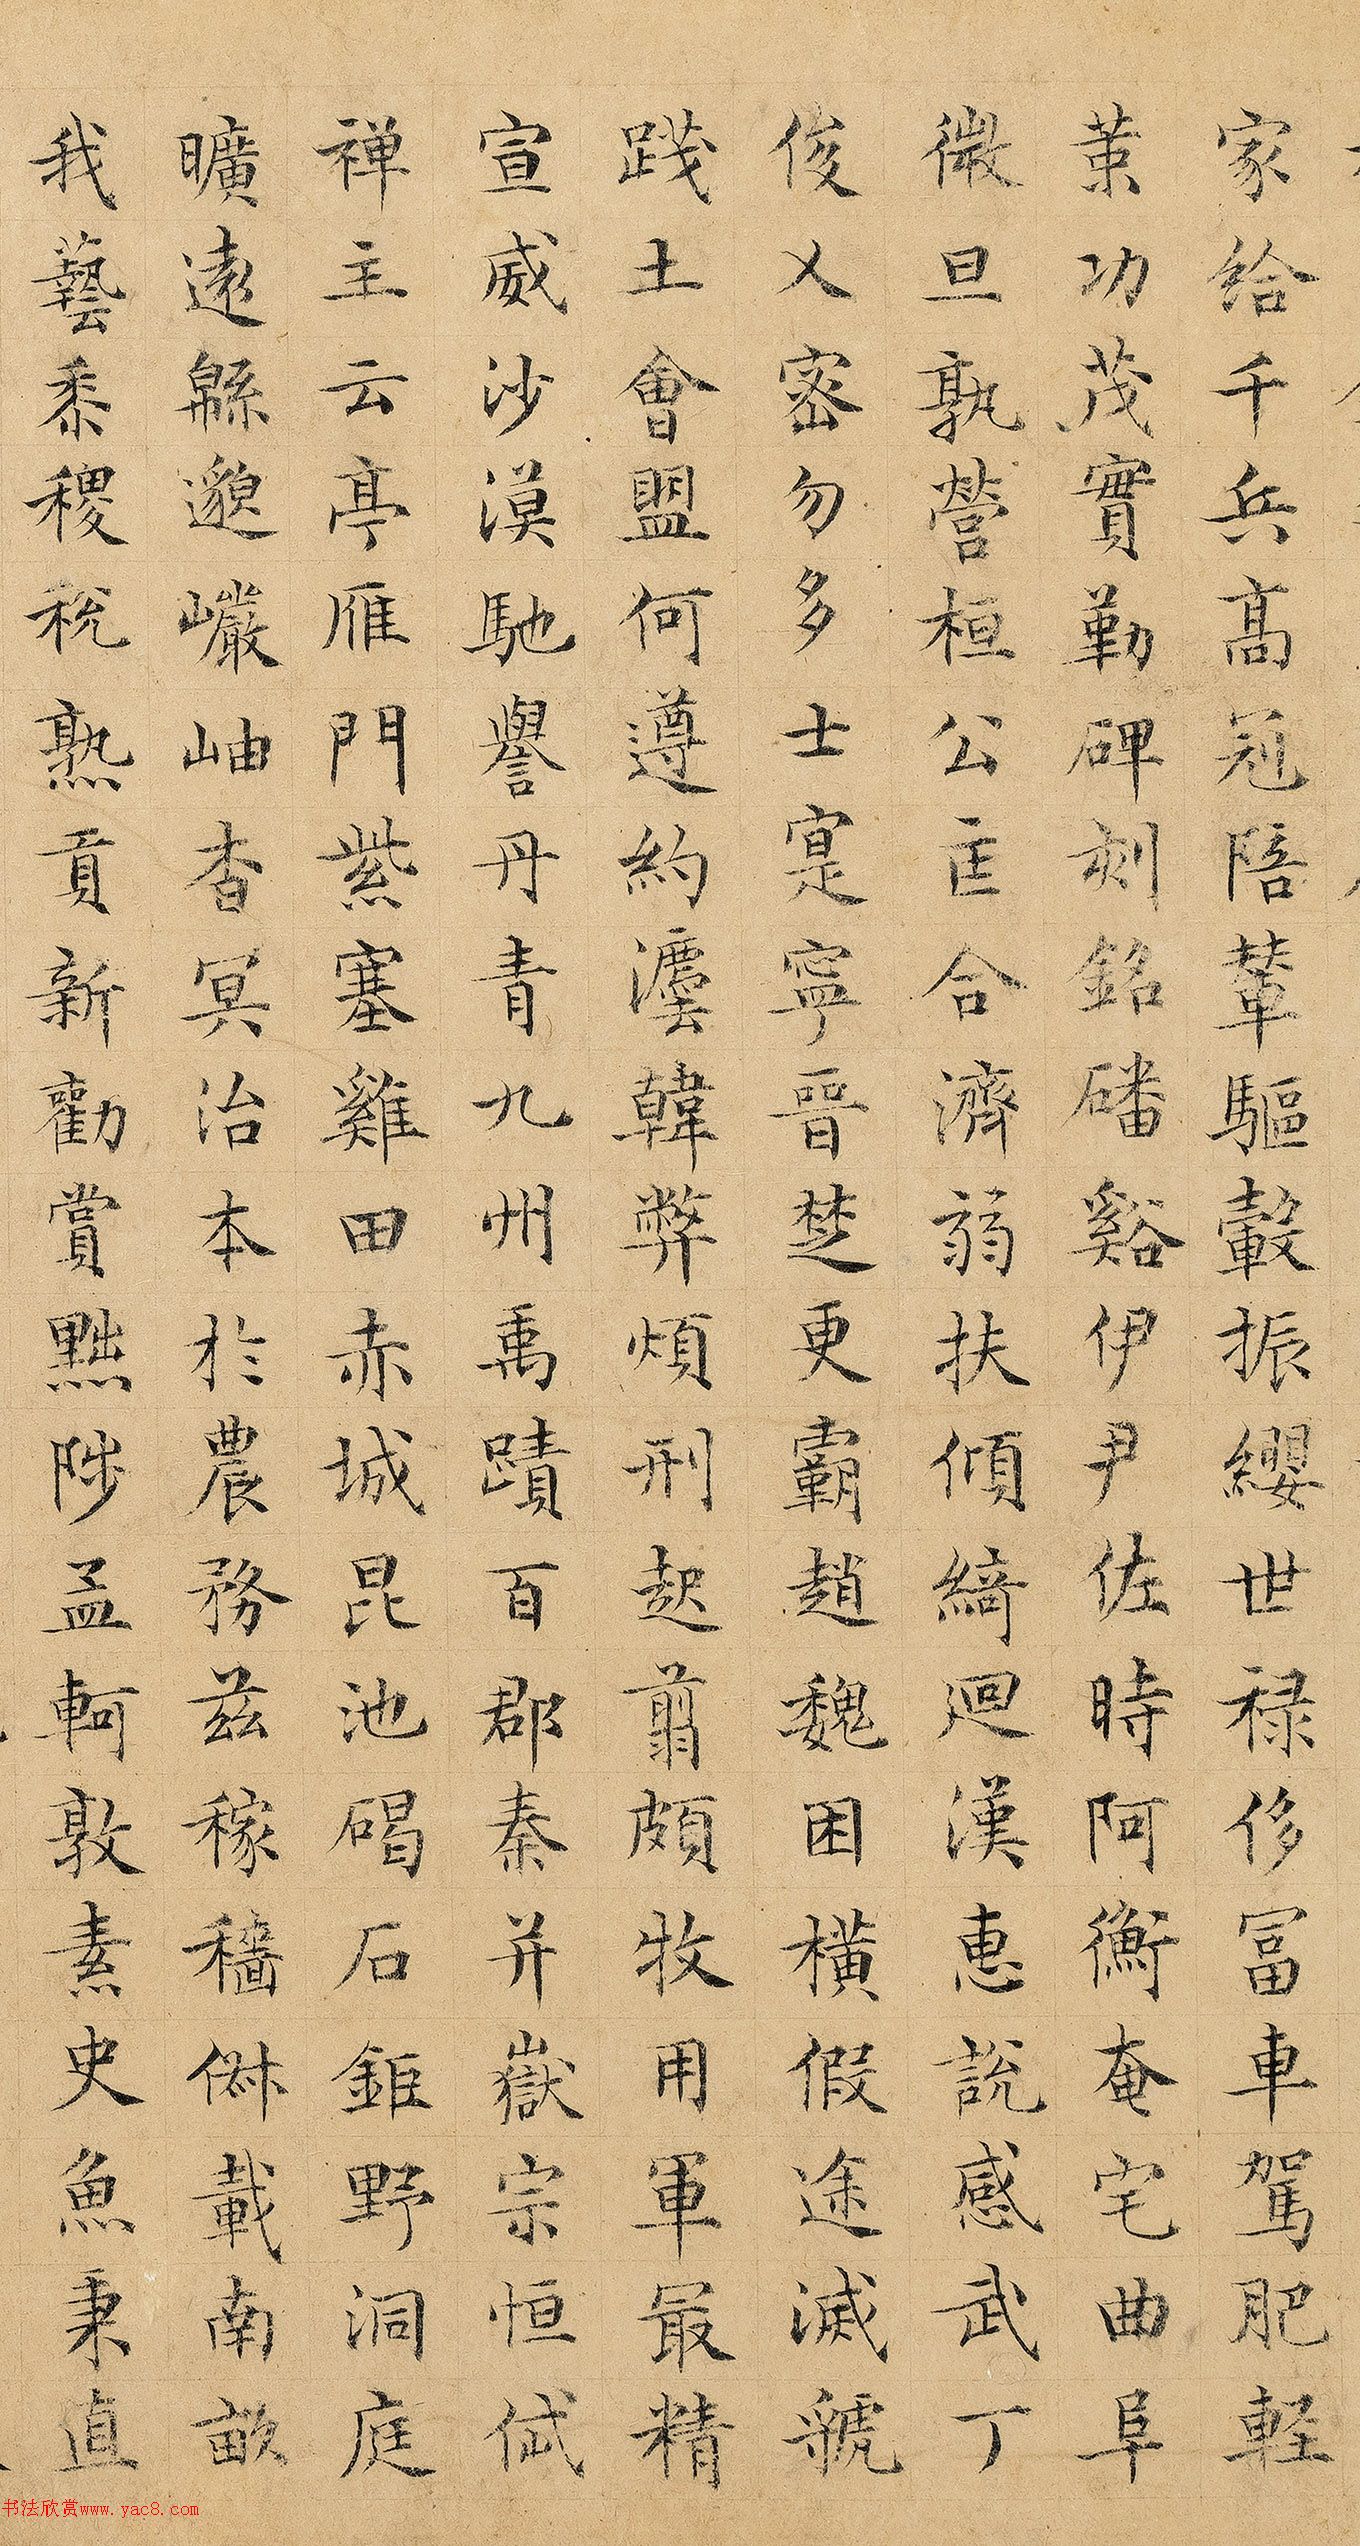 家給千兵高冠陪輦驅轂振纓世禄侈冨車駕肥軽
茂實勒碑刻銘磻谿伊尹佐時阿衡奄宅曲阜
微旦孰營桓公匡合濟弱扶傾綺迴漢惠說感武丁
俊乂密勿多士寔寧晉楚更霸趙魏困橫假途滅虢
踐土會盟何遵約法韓弊煩刑起翦頗牧用軍最精
宣威沙漠馳譽丹青九州禹蹟百郡秦并嶽宗恒岱
禅主云亭雁門紫塞雞田赤城昆池碣石鉅野洞庭
曠遠緜邈巗岫杳冥治本於農務茲稼穡俶載南畝
我藝黍稷稅熟貢新勸賞黜陟孟軻敦素史魚秉直
书法欣赏www.yac8.com